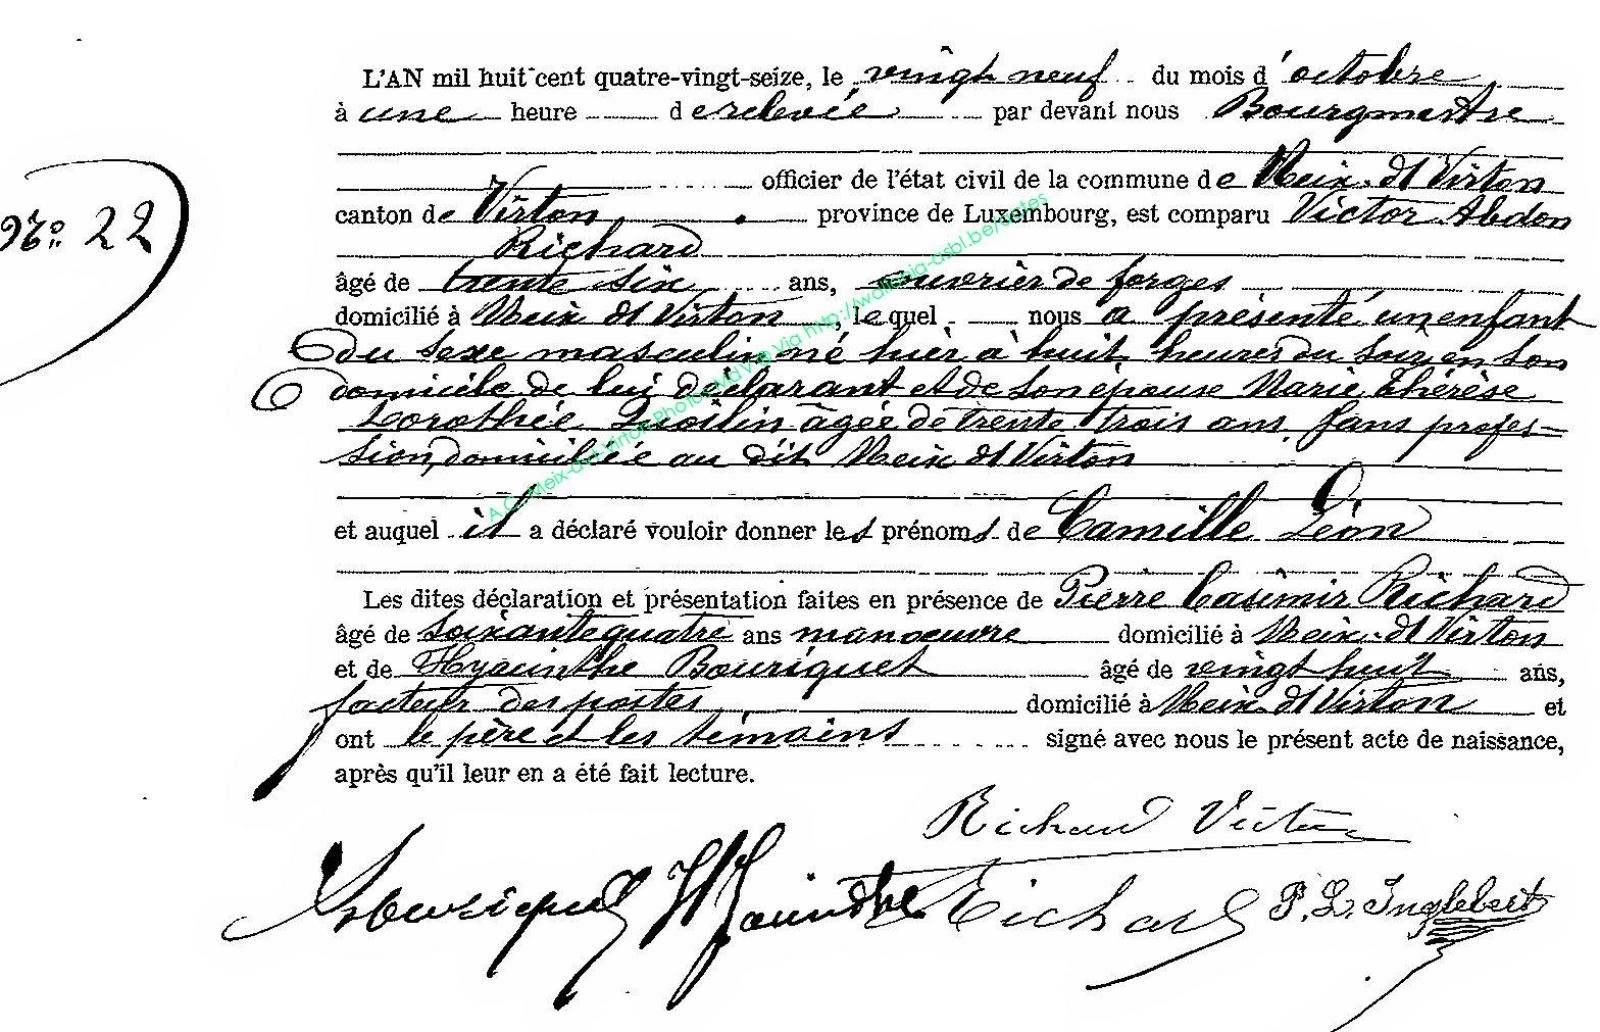 L'AN mil huit cent quatre-vingt-seize, le vingt neuf du mois d'octobre
à une heure de relevée par devant nous Bourgmestre
officier de l'état civil de la commune de Meix-dt Virton
N° 22
canton de Virton, province de Luxembourg, est comparu Victor Abdon
Richard
âgé de trente six ans, ouvrier de forges
domicilié à Meix dt Virton, lequel nous a présenté un enfant
du sexe masculin né hier à huit heures du soir en son
domicile de lui déclarant et de son épouse Marie Thérèse
Dorothée Quoilin âgée de trente trois ans, sans profes=
sion, domiciliée au dit Meix dt Virton
et auquel il a déclaré vouloir donner les prénoms de Camille Léon
Les dites déclaration et présentation faites en présence de Pierre Casimir Richard
âgé de soixante quatre ans manoeuvre domicilié à Meix-dt Virton
et de Hyacinthe Bouriquet âgé de vingt huit ans,
facteur des postes domicilié à Meix dt Virton et
ont le père et les témoins signé avec nous le présent acte de naissance,
après qu'il leur en a été fait lecture.
Richard Victor
Bouriquet Hyacinthe Richard P. L. Inglebert